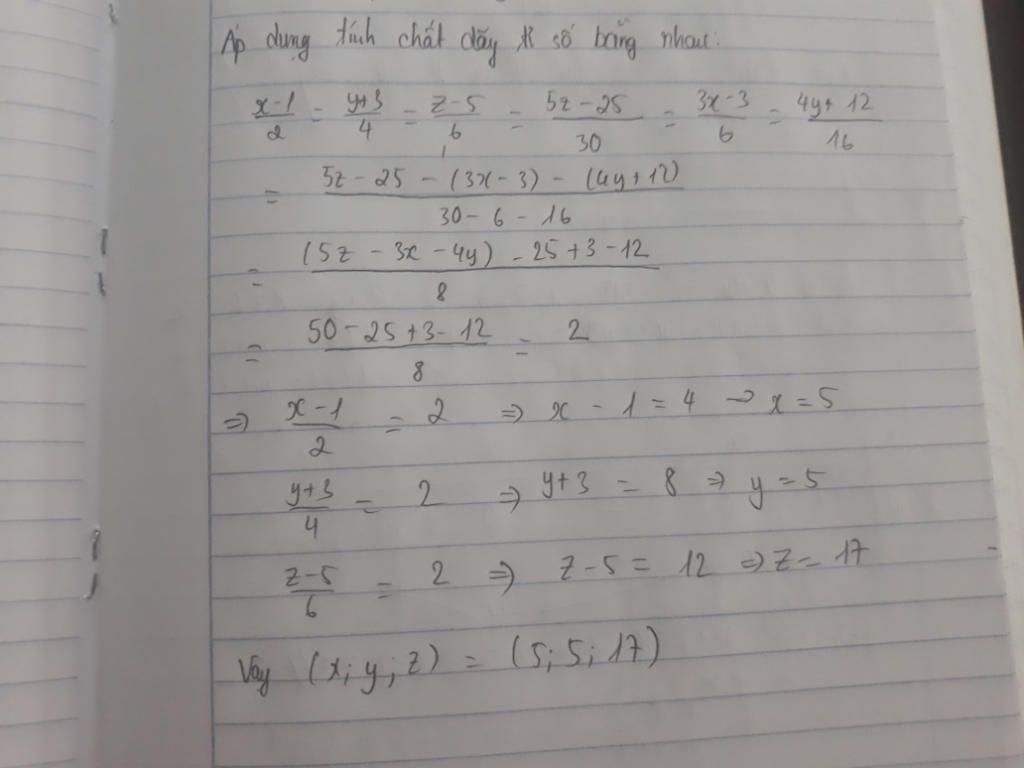 Áp dụng tính chất dãy tỉ số bằng nhau:
x-1/2 = y+3/4 = z-5/6 = 5z-25/30 = 3x-3/6 = 4y+12/16
= 5z-25-(3x-3)-(4y+12)/30-6-16
= (5z-3x-4y)-25+3-12/8
= 50-25+3-12/8 = 2
⇒ x-1/2 = 2 ⇒ x-1=4 → x=5
y+3/4 = 2 ⇒ y+3 = 8 ⇒ y=5
z-5/6 = 2 ⇒ z-5 = 12 ⇒ z=17
Vậy (x;y;z) = (5;5;17)